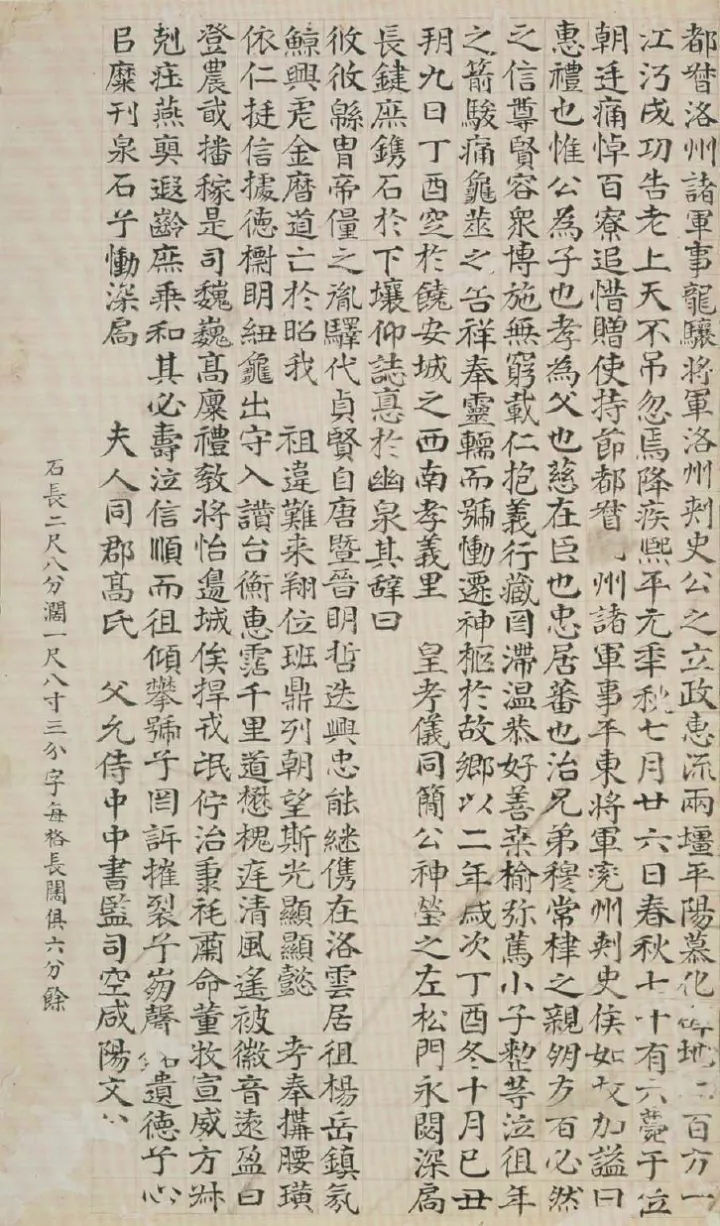 都督洛州諸軍事龍驤將軍洛州刺史公之立政惠流兩壃平陽慕化地二百方一
江沔成功告老上天不弔忽焉降疾熙平元年秋七月廿六日春秋七十有六薨于位
朝廷痛悼百寮追惜贈使持節都督州諸軍事平東將軍兗州刺史侯如故加謚曰
惠禮也惟公為子也孝為父也慈在臣也忠居蕃也治兄弟穆常棣之親朋友百必然
之信尊賢容衆博施無窮載仁抱義行藏罔滯温恭好善桑榆弥篤小子整等泣徂年
之箭駿痛龜筮之告祥奉靈輀而號慟遷神柩於故鄉以二年歲次丁酉冬十月己丑
朔九日丁酉窆於饒安城之西南孝義里 皇考儀同簡公神塋之左松門永閟深扃
長鍵庶鐫石於下壤仰誌惪於幽泉其辭曰
攸攸緜胄帝僵之胤驛代貞賢自唐暨晉明哲迭興忠能継儁在洛雲居徂楊岳鎮氛
鯨興虐金曆道亡於昭我 祖違難来翔位班鼎列朝望斯光顯顯懿 考奉搆腰璜
依仁挺信據德櫥明紐龜出守入讃台衡惠霑千里道懋槐庭清風遙被徽音遠盈曰
登農或播稼是司魏巍髙廩禮教將怡邊城俟捍戎氓佇治秉旄肅命董牧宣威方穌
尅疘燕奭遐齡庶乗和其必壽泣信順而徂傾攀號兮罔訴摧裂兮崩聲銘遺德兮心
㠯糜刊泉石兮慟深扃 夫人同郡髙氏 父允侍中中書監司空咸陽文公
石長二尺八分濶一尺八寸三分字每格長闊俱六分餘